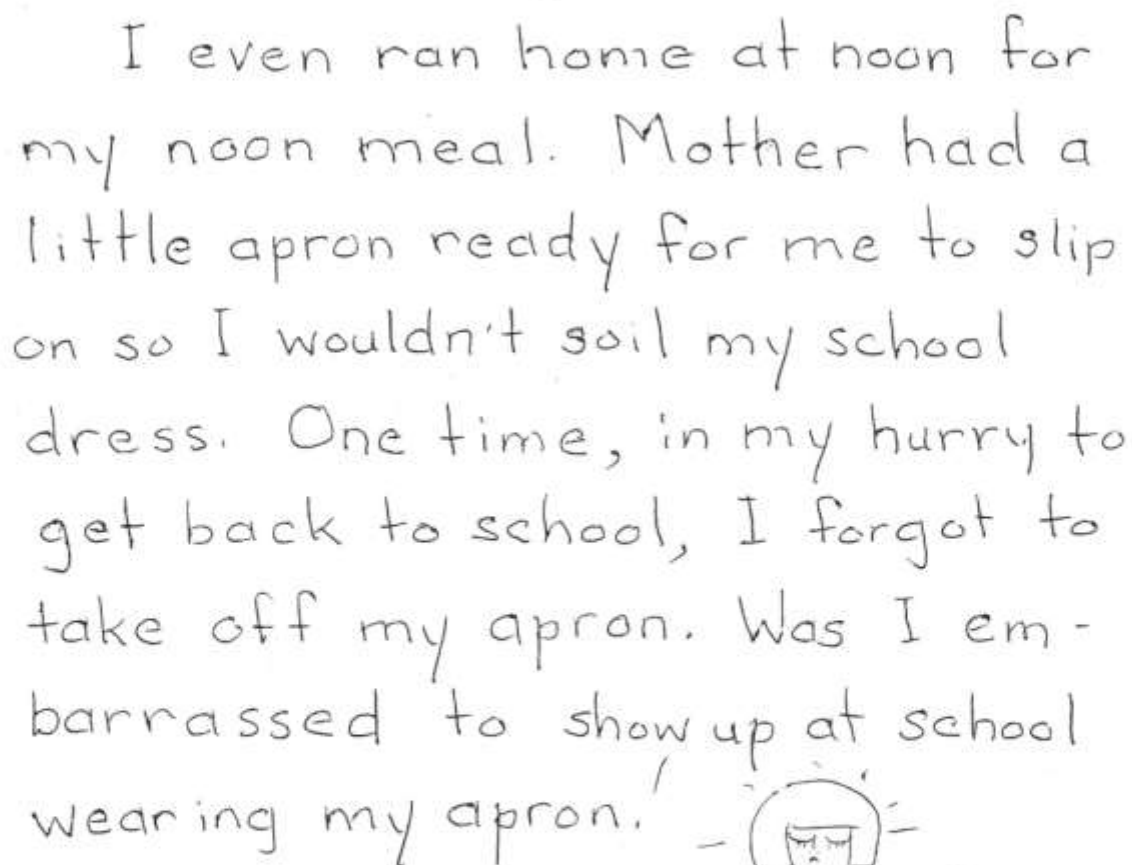 I even ran home at noon for
my noon meal. Mother had a
little apron ready for me to slip
on so I wouldn't soil my school
dress. One time, in my hurry to
get back to school, I forgot to
take off my apron. Was I em-
barrassed to show up at school
wearing my apron!